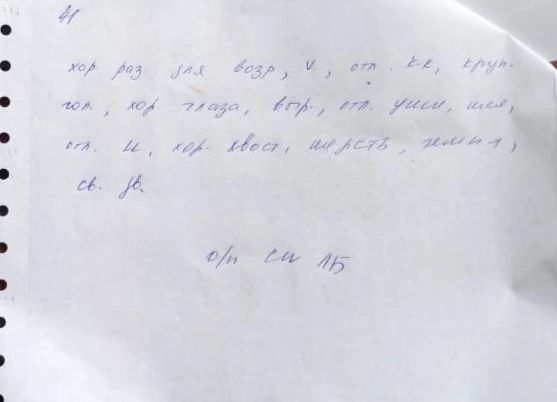 41
хор раз для возр, V, отл. к-к, круп.
гол., хор. глаза, выр., отл. уши, шея,
отл. и, хор. хвост, шерсть, темп-т,
св. дв.
о/п CW ЛБ